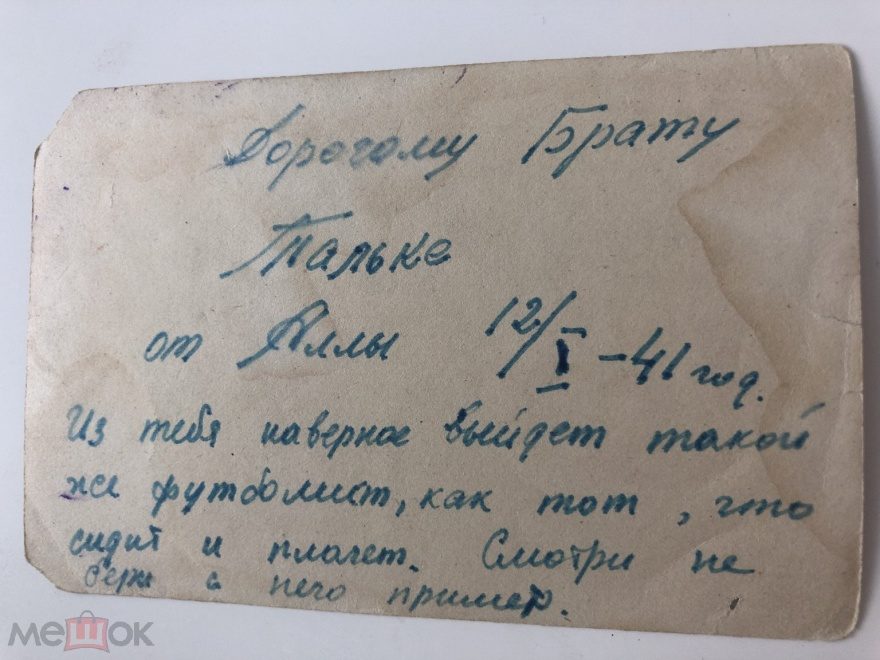 Дорогому Брату
Тальке
от Аллы 12/I-41 год.
Из тебя наверное выйдет такой
же футболист, как тот, что
сидит и плачет. Смотри не
бери с него пример.
мешок